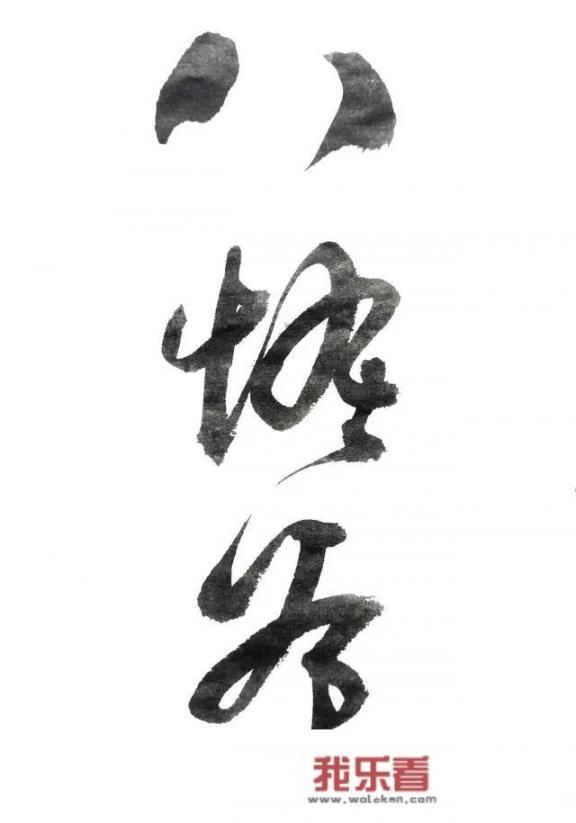 八怪
我乐看
www.woleken.com